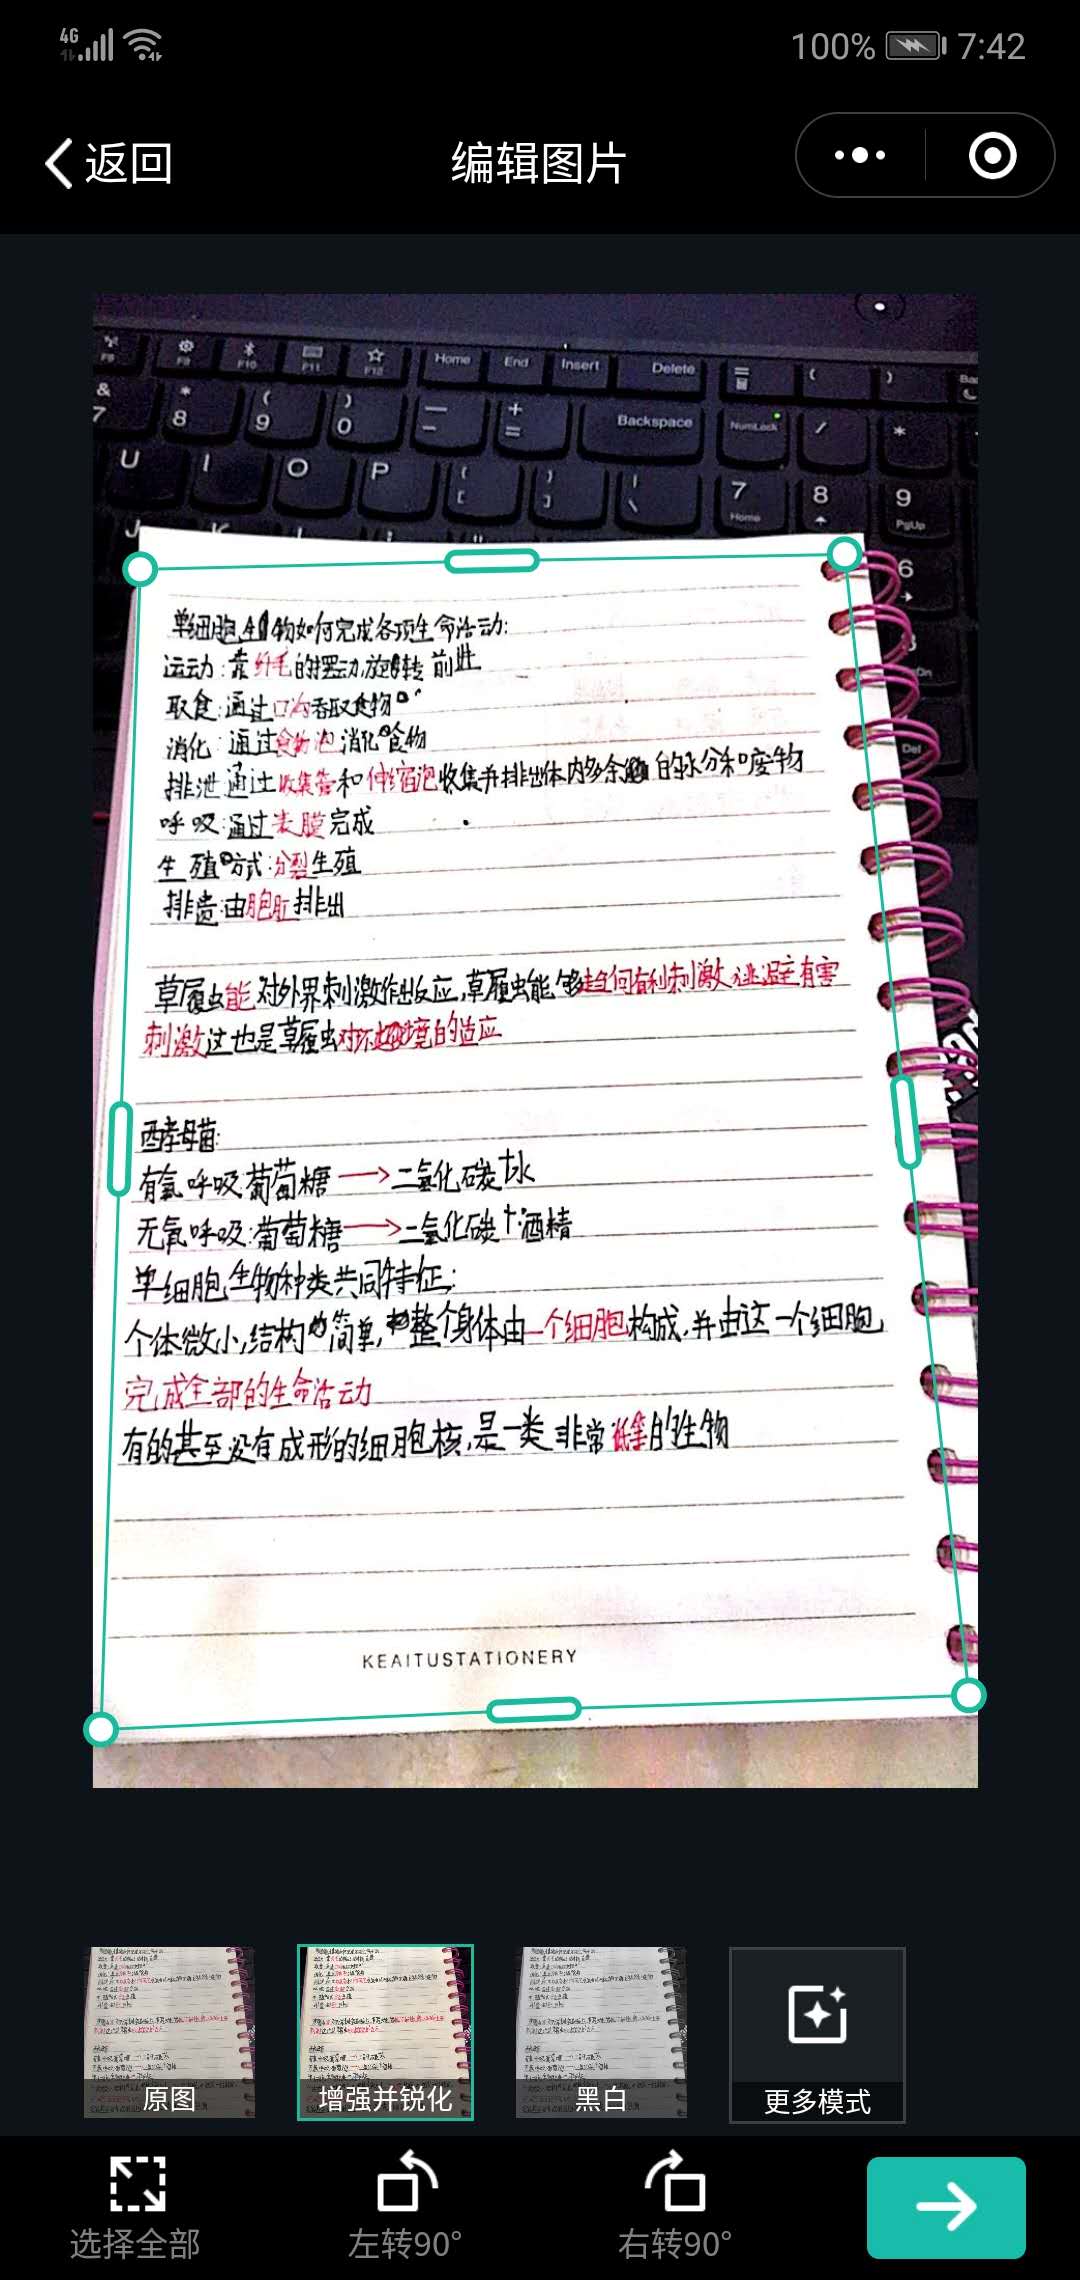 4G
100%
7:42
返回
编辑图片
F9
F10
F11
F12
Home
End
Insert
Delete
&
7
*
8
(
9
)
0
Backspace
NumLock
/
*
U
I
O
P
7
Home
8
9
PgUp
J
6
Del
单细胞生物如何完成各项生命活动:
运动:靠纤毛的摆动,旋转前进
取食:通过口沟吞取食物
消化:通过食物泡消化食物
排泄:通过收集管和伸缩泡收集并排出体内多余的水分和废物
呼吸:通过表膜完成
生殖方式:分裂生殖
排遗:由胞肛排出
草履虫能对外界刺激作出反应,草履虫能够趋向有利刺激,逃避有害
刺激这也是草履虫对环境的适应
酵母菌:
有氧呼吸:葡萄糖→二氧化碳+水
无氧呼吸:葡萄糖→二氧化碳+酒精
单细胞生物种类共同特征:
个体微小,结构简单,整个身体由一个细胞构成,并由这一个细胞
完成全部的生命活动
有的甚至没有成形的细胞核,是一类非常低等的生物
KEAITUSTATIONERY
原图
增强并锐化
黑白
更多模式
选择全部
左转90°
右转90°